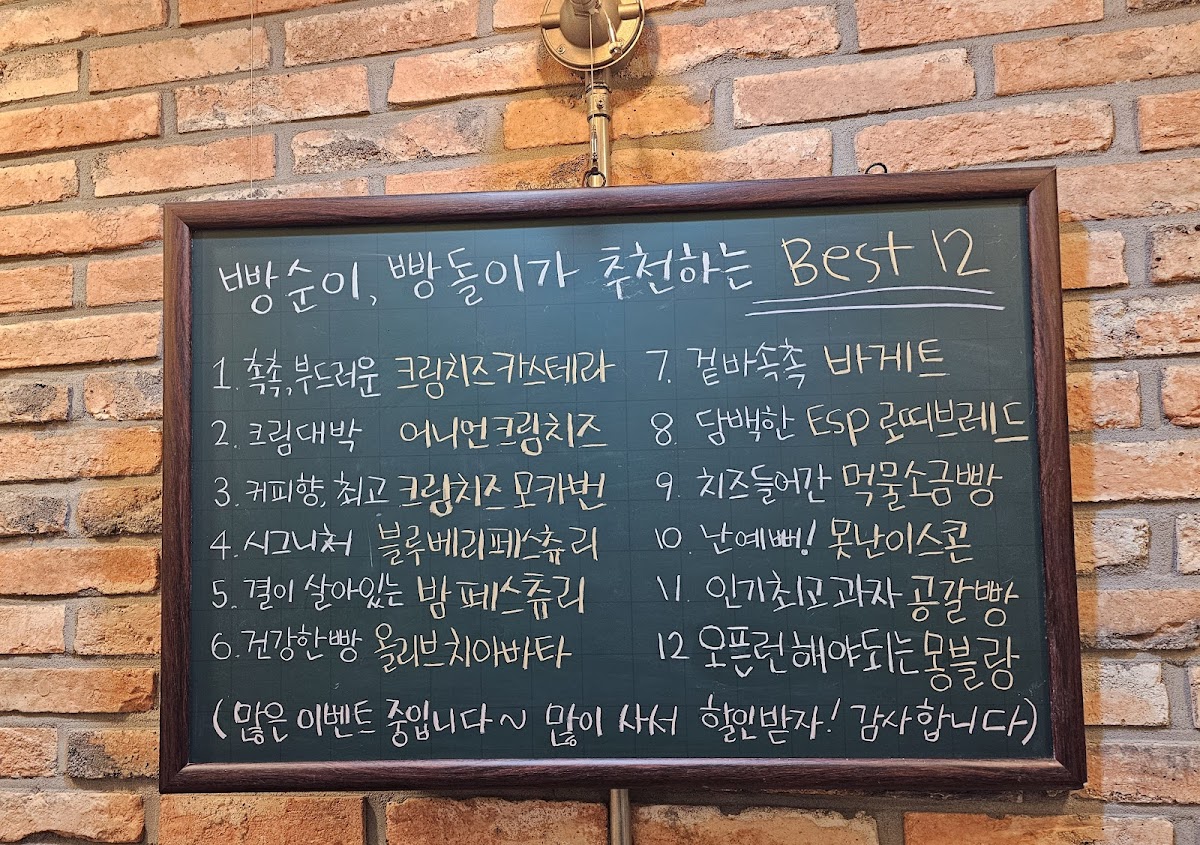 빵순이, 빵돌이가 추천하는 Best 12
1. 촉촉,부드러운 크림치즈카스테라
2. 크림대박 어니언크림치즈
3. 커피향, 최고 크림치즈 모카번
4. 시그니처 블루베리페스츄리
5. 결이 살아있는 밤 페스츄리
6. 건강한빵 올리브치아바타
7. 겉바속촉 바게트
8. 담백한 Esp 로띠브레드
9. 치즈들어간 먹물소금빵
10. 난예뻐! 못난이스콘
11. 인기최고과자 공갈빵
12 오픈런해야되는 몽블랑
(많은 이벤트 중입니다~ 많이 사서 할인받자! 감사합니다)